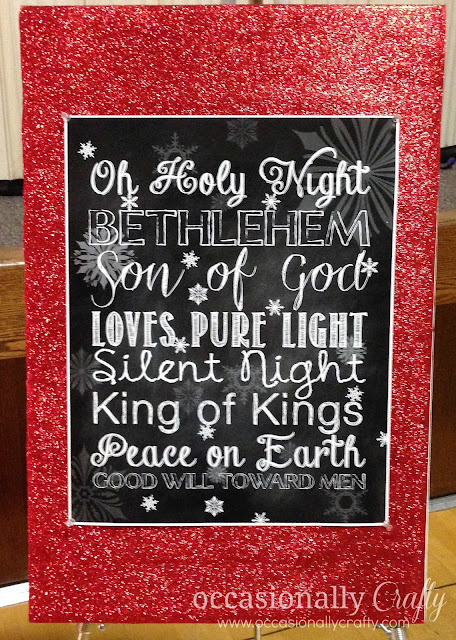 Oh Holy Night
BETHLEHEM
Son of God
LOVES PURE LIGHT
Silent Night
King of Kings
Peace on Earth
GOOD WILL TOWARD MEN
occasionally Crafty
www.occasionallycrafty.com